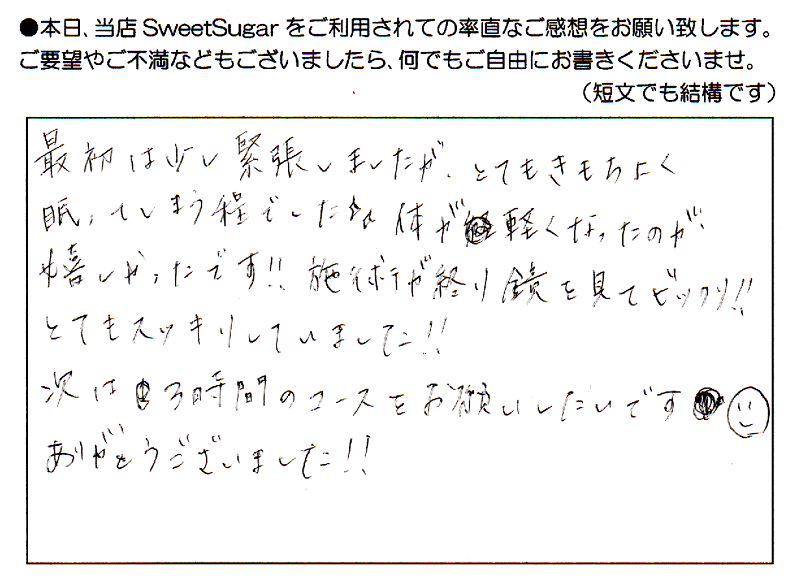 ●本日、当店SweetSugarをご利用されての率直なご感想をお願い致します。
ご要望やご不満などもございましたら、何でもご自由にお書きくださいませ。
（短文でも結構です）
最初は少し緊張しましたが、とてもきもちよく
眠ってしまう程でした☆☆体が軽くなったのが
嬉しかったです!!施術が終り鏡を見てビックリ!!
とてもスッキリしていました!!
次は3時間のコースをお願いしたいです
ありがとうございました!!